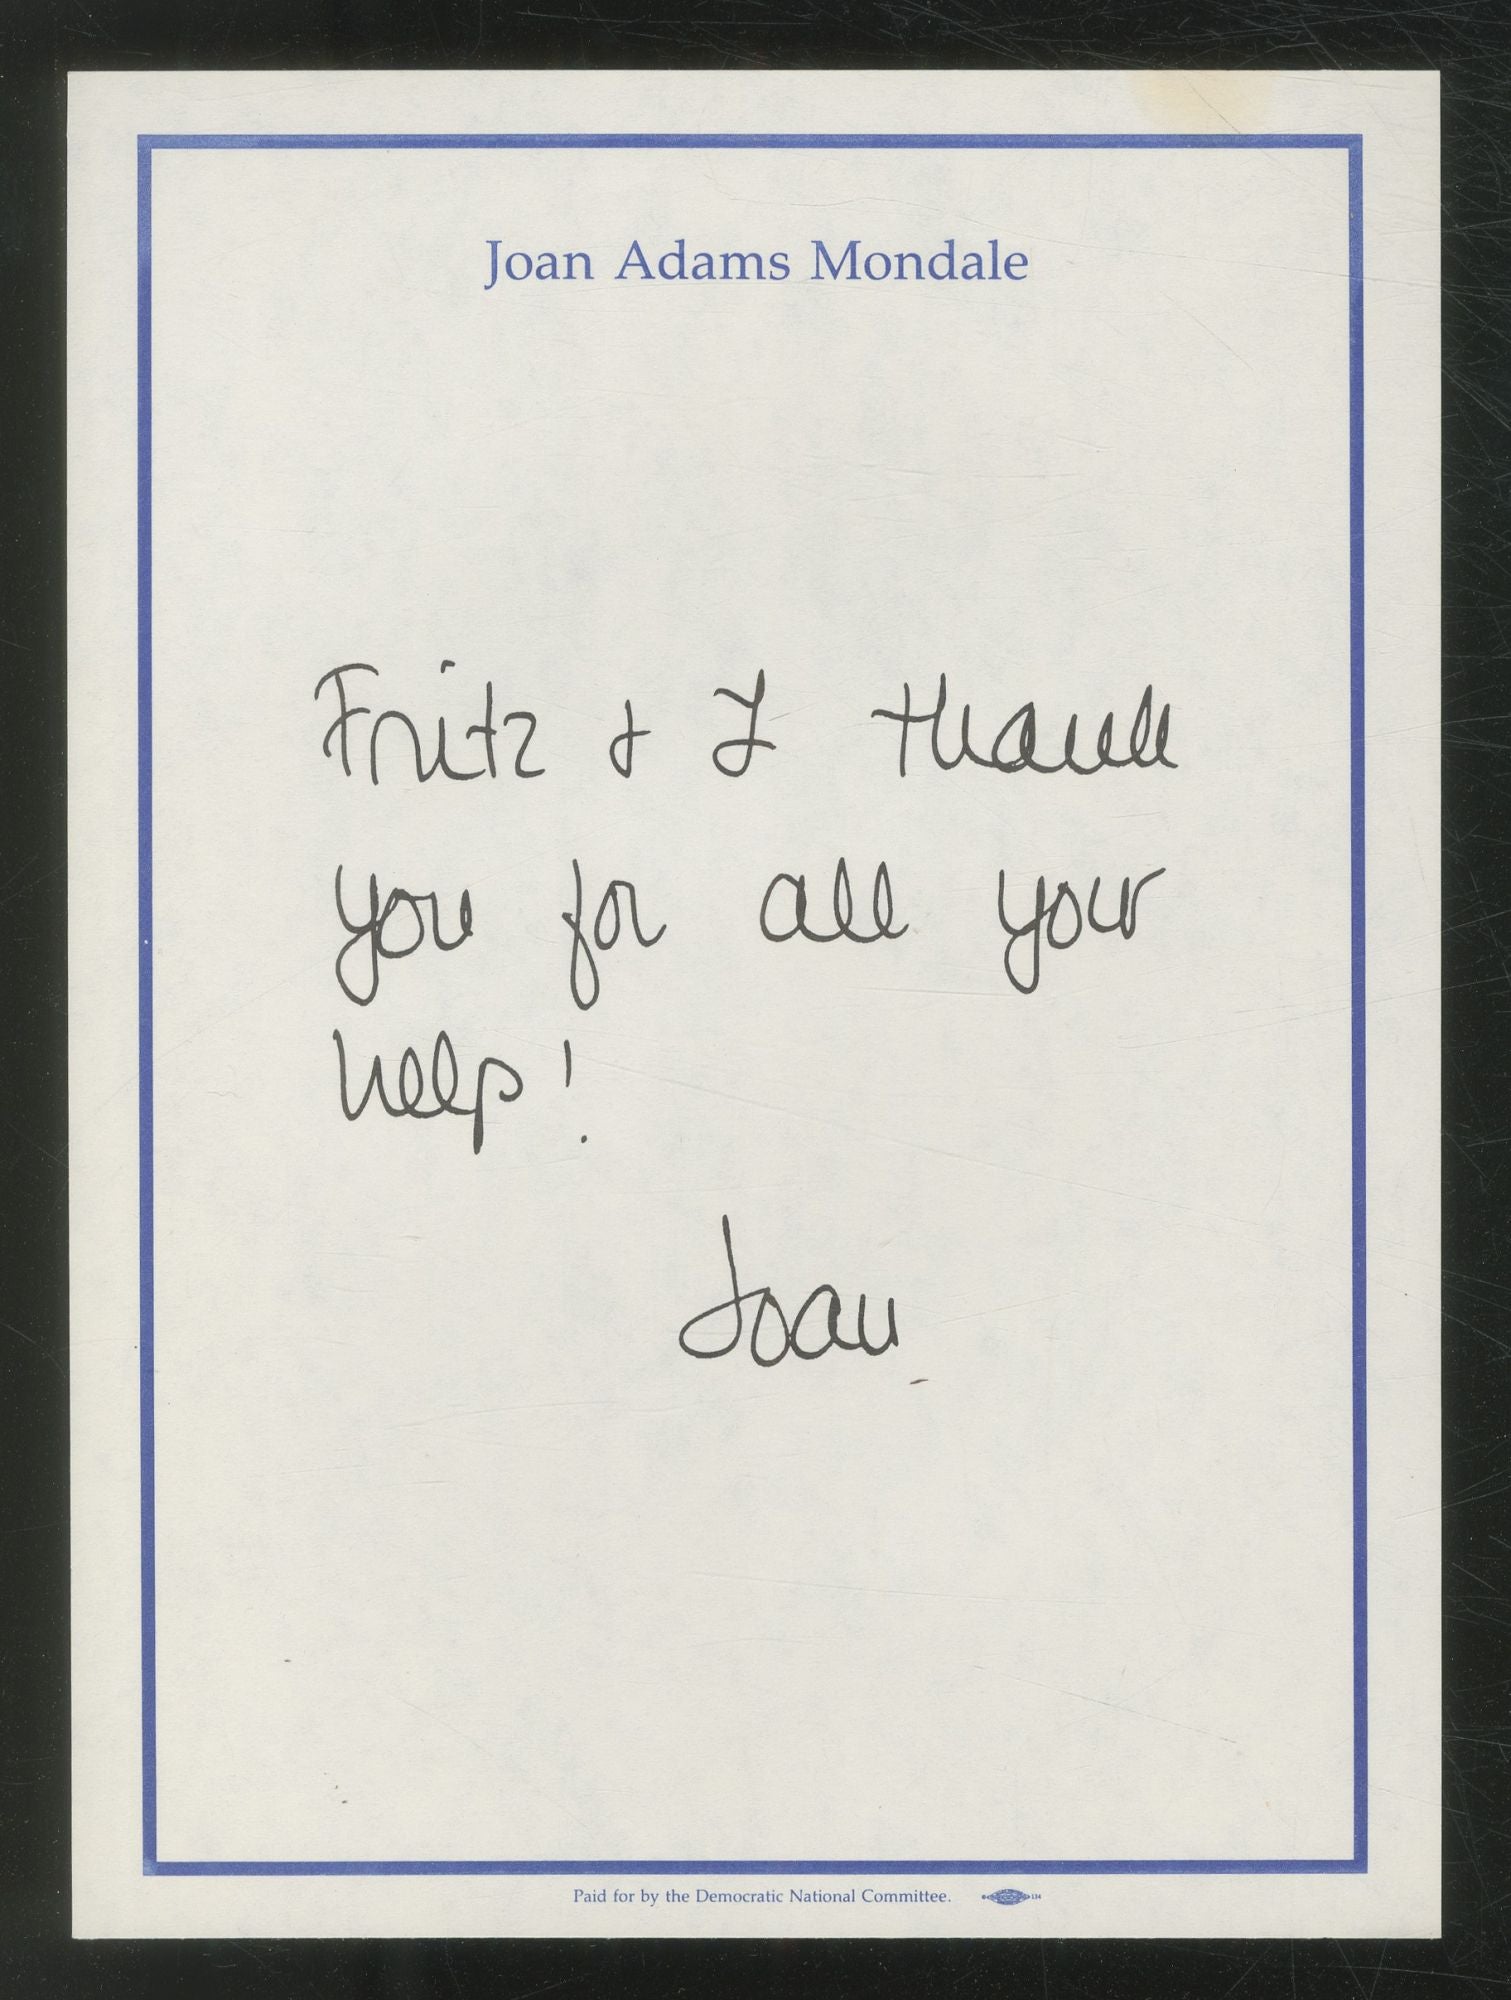 Joan Adams Mondale
Fritz & I thank
you for all your
help!
Joan
Paid for by the Democratic National Committee.